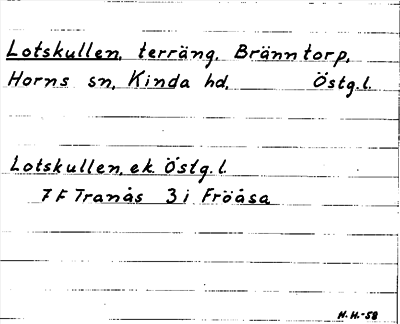 Lotskullen, terräng, Bränntorp,
Horns sn, Kinda hd, Östg.l.
Lotskullen, ek. Östg. l.
7 F Tranås 3 i Fröåsa
H. H.-58